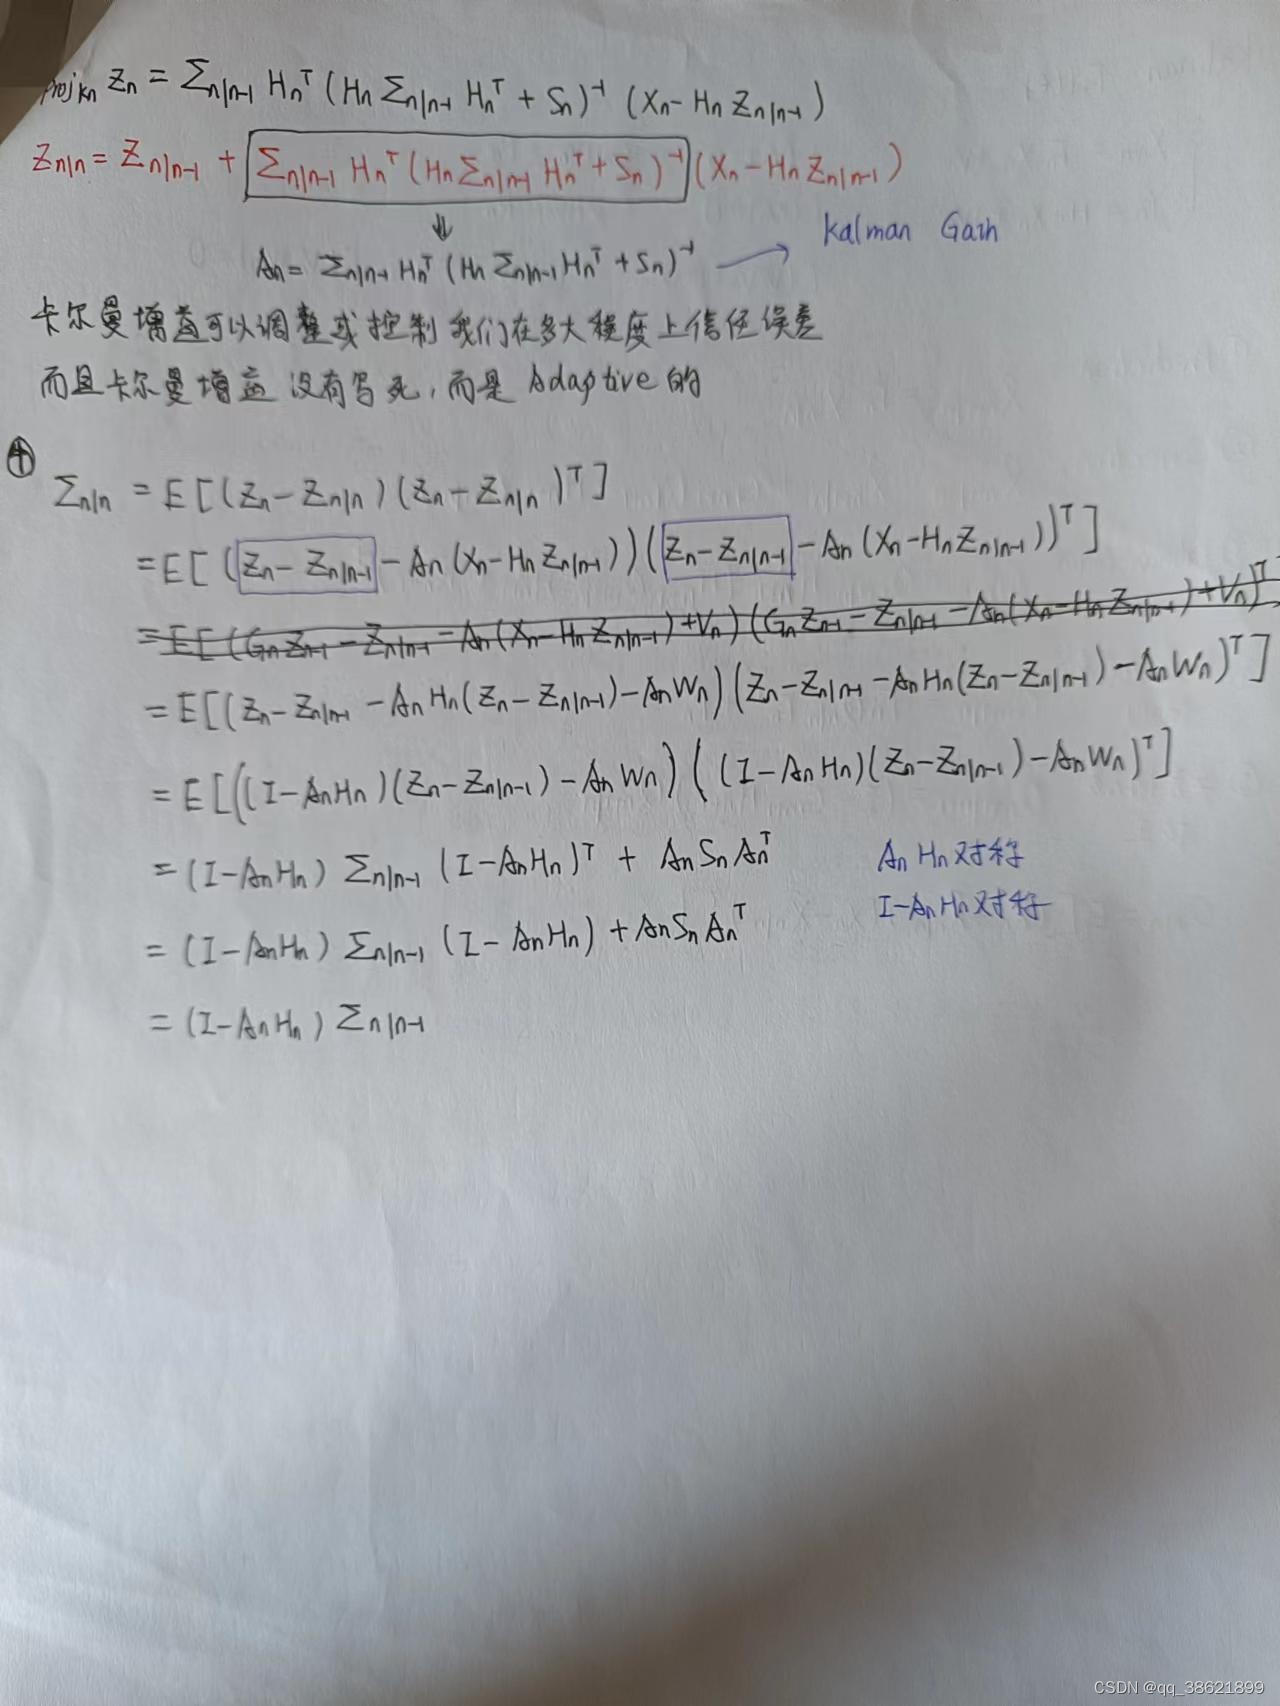 proj_{Kn} Zn = Σn|n-1 Hn^T (Hn Σn|n-1 Hn^T + Sn)^-1 (Xn - Hn Zn|n-1)
Zn|n = Zn|n-1 + Σn|n-1 Hn^T (Hn Σn|n-1 Hn^T + Sn)^-1 (Xn - Hn Zn|n-1)
⇓
An = Σn|n-1 Hn^T (Hn Σn|n-1 Hn^T + Sn)^-1 → Kalman Gain
卡尔曼增益可以调整或控制我们在多大程度上信任误差
而且卡尔曼增益没有写死,而是 Adaptive 的
④
Σn|n = E[(Zn - Zn|n)(Zn - Zn|n)^T]
= E[(Zn - Zn|n-1 - An(Xn - Hn Zn|n-1))(Zn - Zn|n-1 - An(Xn - Hn Zn|n-1))^T]
= E[(Gn Zn-1 - Zn|n-1 - An(Xn - Hn Zn|n-1) + Vn)(Gn Zn-1 - Zn|n-1 - An(Xn - Hn Zn|n-1) + Vn)^T
= E[(Zn - Zn|n-1 - An Hn(Zn - Zn|n-1) - An Wn)(Zn - Zn|n-1 - An Hn(Zn - Zn|n-1) - An Wn)^T]
= E[((I - An Hn)(Zn - Zn|n-1) - An Wn)((I - An Hn)(Zn - Zn|n-1) - An Wn)^T]
= (I - An Hn) Σn|n-1 (I - An Hn)^T + An Sn An^T
An Hn 对称
I - An Hn 对称
= (I - An Hn) Σn|n-1 (I - An Hn) + An Sn An^T
= (I - An Hn) Σn|n-1
CSDN @qq_38621899